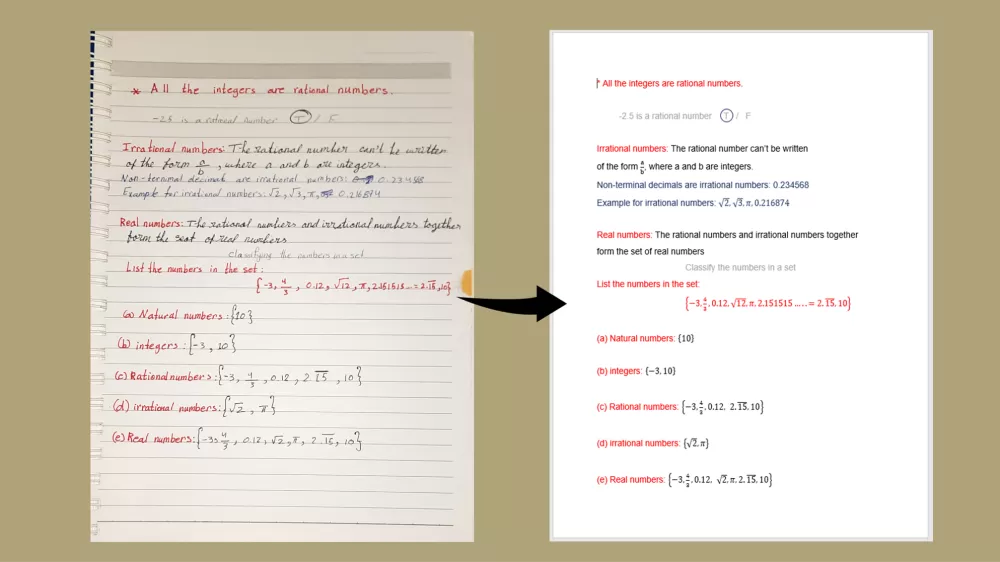 * All the integers are rational numbers.
-2.5 is a rational number (T) / F
Irrational numbers: The rational number can't be written
of the form a/b, where a and b are integers.
Non-terminal decimals are irrational numbers: 0.234568
Example for irrational numbers: √2, √3, π, 0.216874
Real numbers: The rational numbers and irrational numbers together
form the seat of real numbers
Classifying the numbers in a set
List the numbers in the set:
{-3, 4/3, 0.12, √12, π, 2.151515... = 2.1̅5̅, 10}
(a) Natural numbers: {10}
(b) integers: {-3, 10}
(c) Rational numbers: {-3, 4/3, 0.12, 2.1̅5̅, 10}
(d) irrational numbers: {√2, π}
(e) Real numbers: {-3, 4/3, 0.12, √2, π, 2.1̅5̅, 10}
* All the integers are rational numbers.
-2.5 is a rational number (T) / F
Irrational numbers: The rational number can't be written
of the form a/b, where a and b are integers.
Non-terminal decimals are irrational numbers: 0.234568
Example for irrational numbers: √2, √3, π, 0.216874
Real numbers: The rational numbers and irrational numbers together
form the set of real numbers
Classify the numbers in a set
List the numbers in the set:
{-3, 4/3, 0.12, √12, π, 2.151515 ..... = 2.1̅5̅, 10}
(a) Natural numbers: {10}
(b) integers: {-3, 10}
(c) Rational numbers: {-3, 4/3, 0.12, 2.1̅5̅, 10}
(d) irrational numbers: {√2, π}
(e) Real numbers: {-3, 4/3, 0.12, √2, π, 2.1̅5̅, 10}